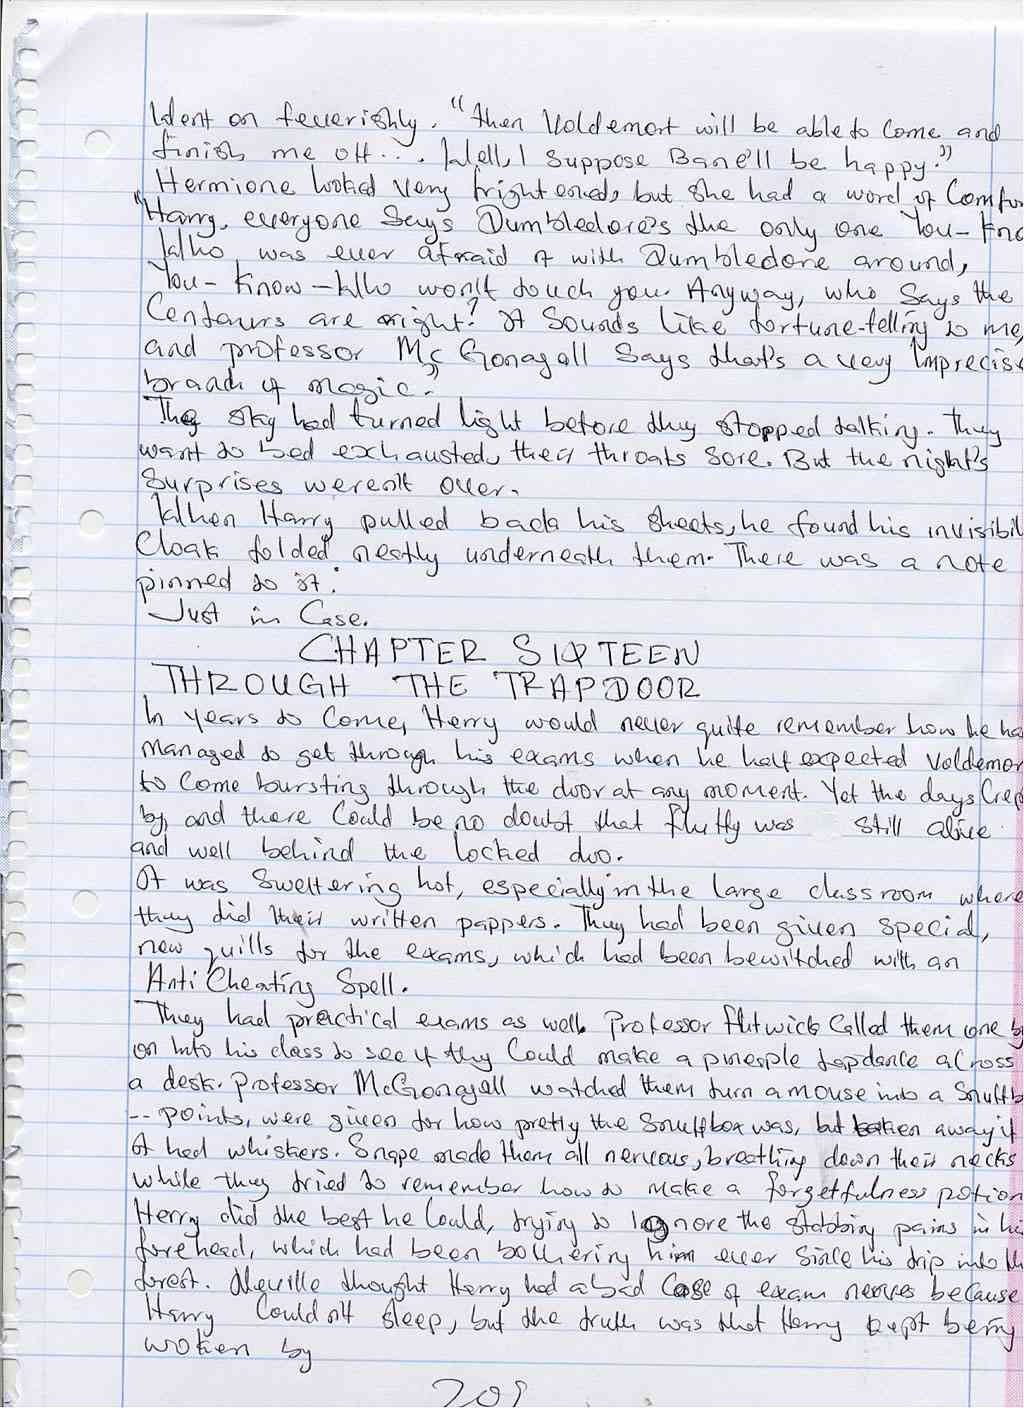 Went on feverishly. "then Voldemort will be able to Come and
finish me off.... Well, I suppose Bane'll be happy."
Hermione looked very frightened, but she had a word of Comfor
"Harry, everyone Says Dumbledore's the only one You-Kno
Who was ever afraid of with Dumbledore around,
You-Know-Who won't touch you. Anyway, who Says the
Centaurs are right? It Sounds like fortune-telling to me,
and professor McGonagall Says that's a very Imprecise
branch of magic."
The sky had turned light before they stopped talking. They
went to bed exhausted, their throats Sore. But the night's
Surprises weren't over.
When Harry pulled back his sheets, he found his invisibil
Cloak folded neatly underneath them. There was a note
pinned to it:
Just in Case.
CHAPTER SIXTEEN
THROUGH THE TRAPDOOR
In years to Come, Harry would never quite remember how he ha
Managed to get through his exams when he half expected Voldemor
to Come bursting through the door at any moment. Yet the days Crep
by, and there Could be no doubt that fluffy was still alive
and well behind the locked doo.
It was sweltering hot, especially in the large classroom where
they did their written pappers. They had been given special,
new quills for the exams, which had been bewitched with an
Anti Cheating Spell.
They had practical exams as well. Professor flitwick Called them one b
on Into his class to see if thy Could make a pineaple tapdance across
a desk. Professor McGonagall watched them turn a mouse into a Snuffb
-- points, were given for how pretty the Snuffbox was, but taken away if
it had whiskers. Snape made them all nervous, breathing down their necks
while they tried to remember how to make a forgetfulness potion
Harry did the best he Could, trying to Ignore the stabbing pains in hi
forehead, which had been bothering him ever since his trip into th
forest. Neville thought Harry had a bad Case of exam nerves because
Harry Couldn't sleep, but the truth was that Harry kept being
woken by
209